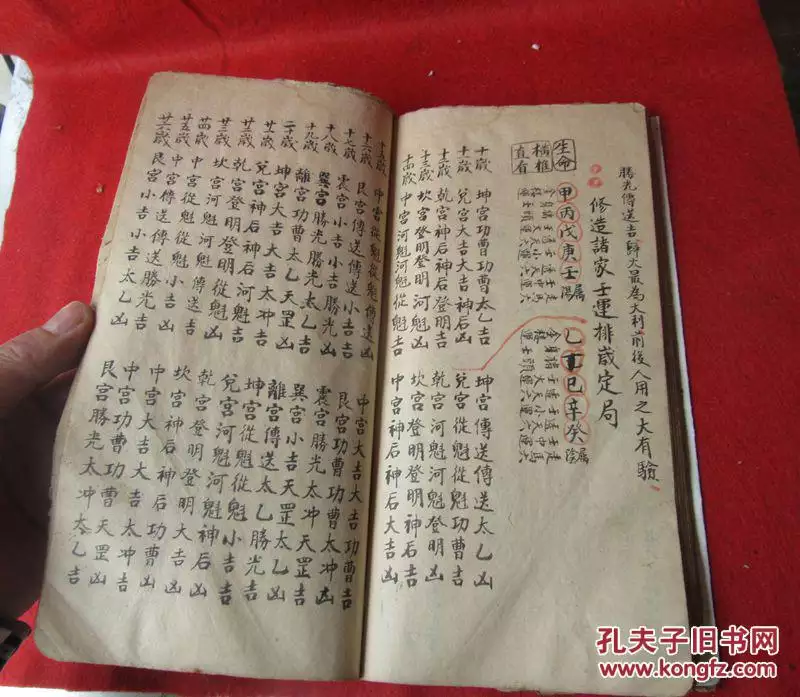 勝光傳送吉歸大最為大利前後人用之大有驗
修造諸家壬運排歲定局
生命 甲丙戊庚壬屬陽 乙丁巳辛癸屬陰
橫推
直有
十歲 坤宮功曹功曹太乙吉 坤宮傳送傳送太乙凶
十一歲 兌宮大吉大吉神后凶 兌宮從魁從魁功曹吉
十二歲 乾宮神后神后登明吉 乾宮河魁河魁登明凶
十三歲 坎宮登明登明河魁凶 坎宮登明登明神后吉
十四歲 中宮河魁河魁從魁吉 中宮神后神后大吉凶
十五歲 中宮從魁從魁傳送凶 中宮大吉大吉功曹吉
十六歲 艮宮傳送傳送小吉吉 艮宮功曹功曹太冲凶
十七歲 震宮小吉小吉勝光凶 震宮勝光太冲天罡吉
十八歲 巽宮勝光勝光太乙吉 巽宮小吉天罡太乙凶
十九歲 離宮功曹太乙天罡凶 離宮傳送太乙勝光吉
二十歲 坤宮大吉天罡太冲吉 坤宮從魁勝光小吉凶
廿一歲 兌宮神后太冲功曹凶 兌宮河魁小吉傳送吉
廿二歲 乾宮登明功曹大吉吉 乾宮登明傳送從魁凶
廿三歲 坎宮河魁大吉神后凶 坎宮神后從魁河魁吉
廿四歲 中宮從魁神后登明吉 中宮大吉河魁登明凶
廿五歲 中宮傳送登明河魁凶 中宮功曹登明神后吉
廿六歲 艮宮小吉河魁從魁吉 艮宮勝光神后大吉凶
孔夫子旧书网
www.kongfz.com